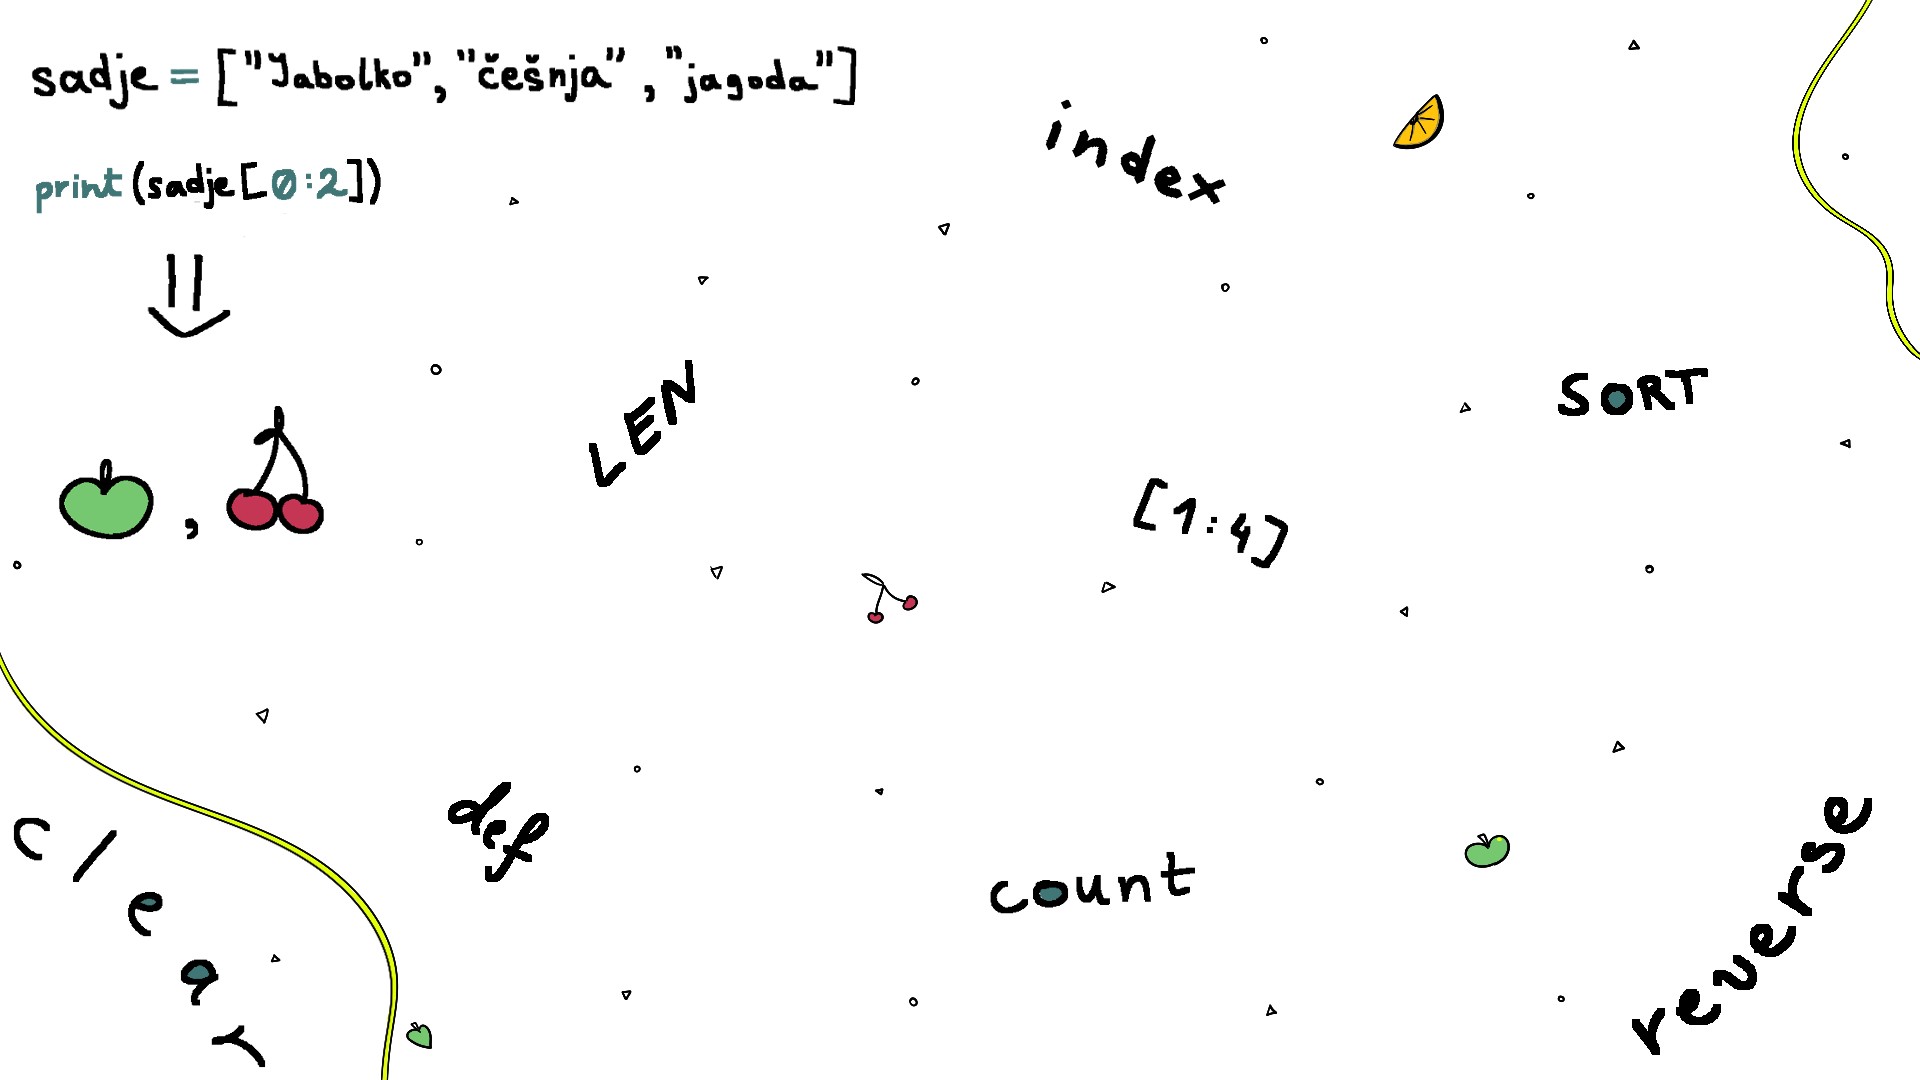 sadje = ["Jabolko", "češnja", "jagoda"]
print(sadje[0:2])
,
index
LEN
SORT
[1:4]
def
count
clear
reverse